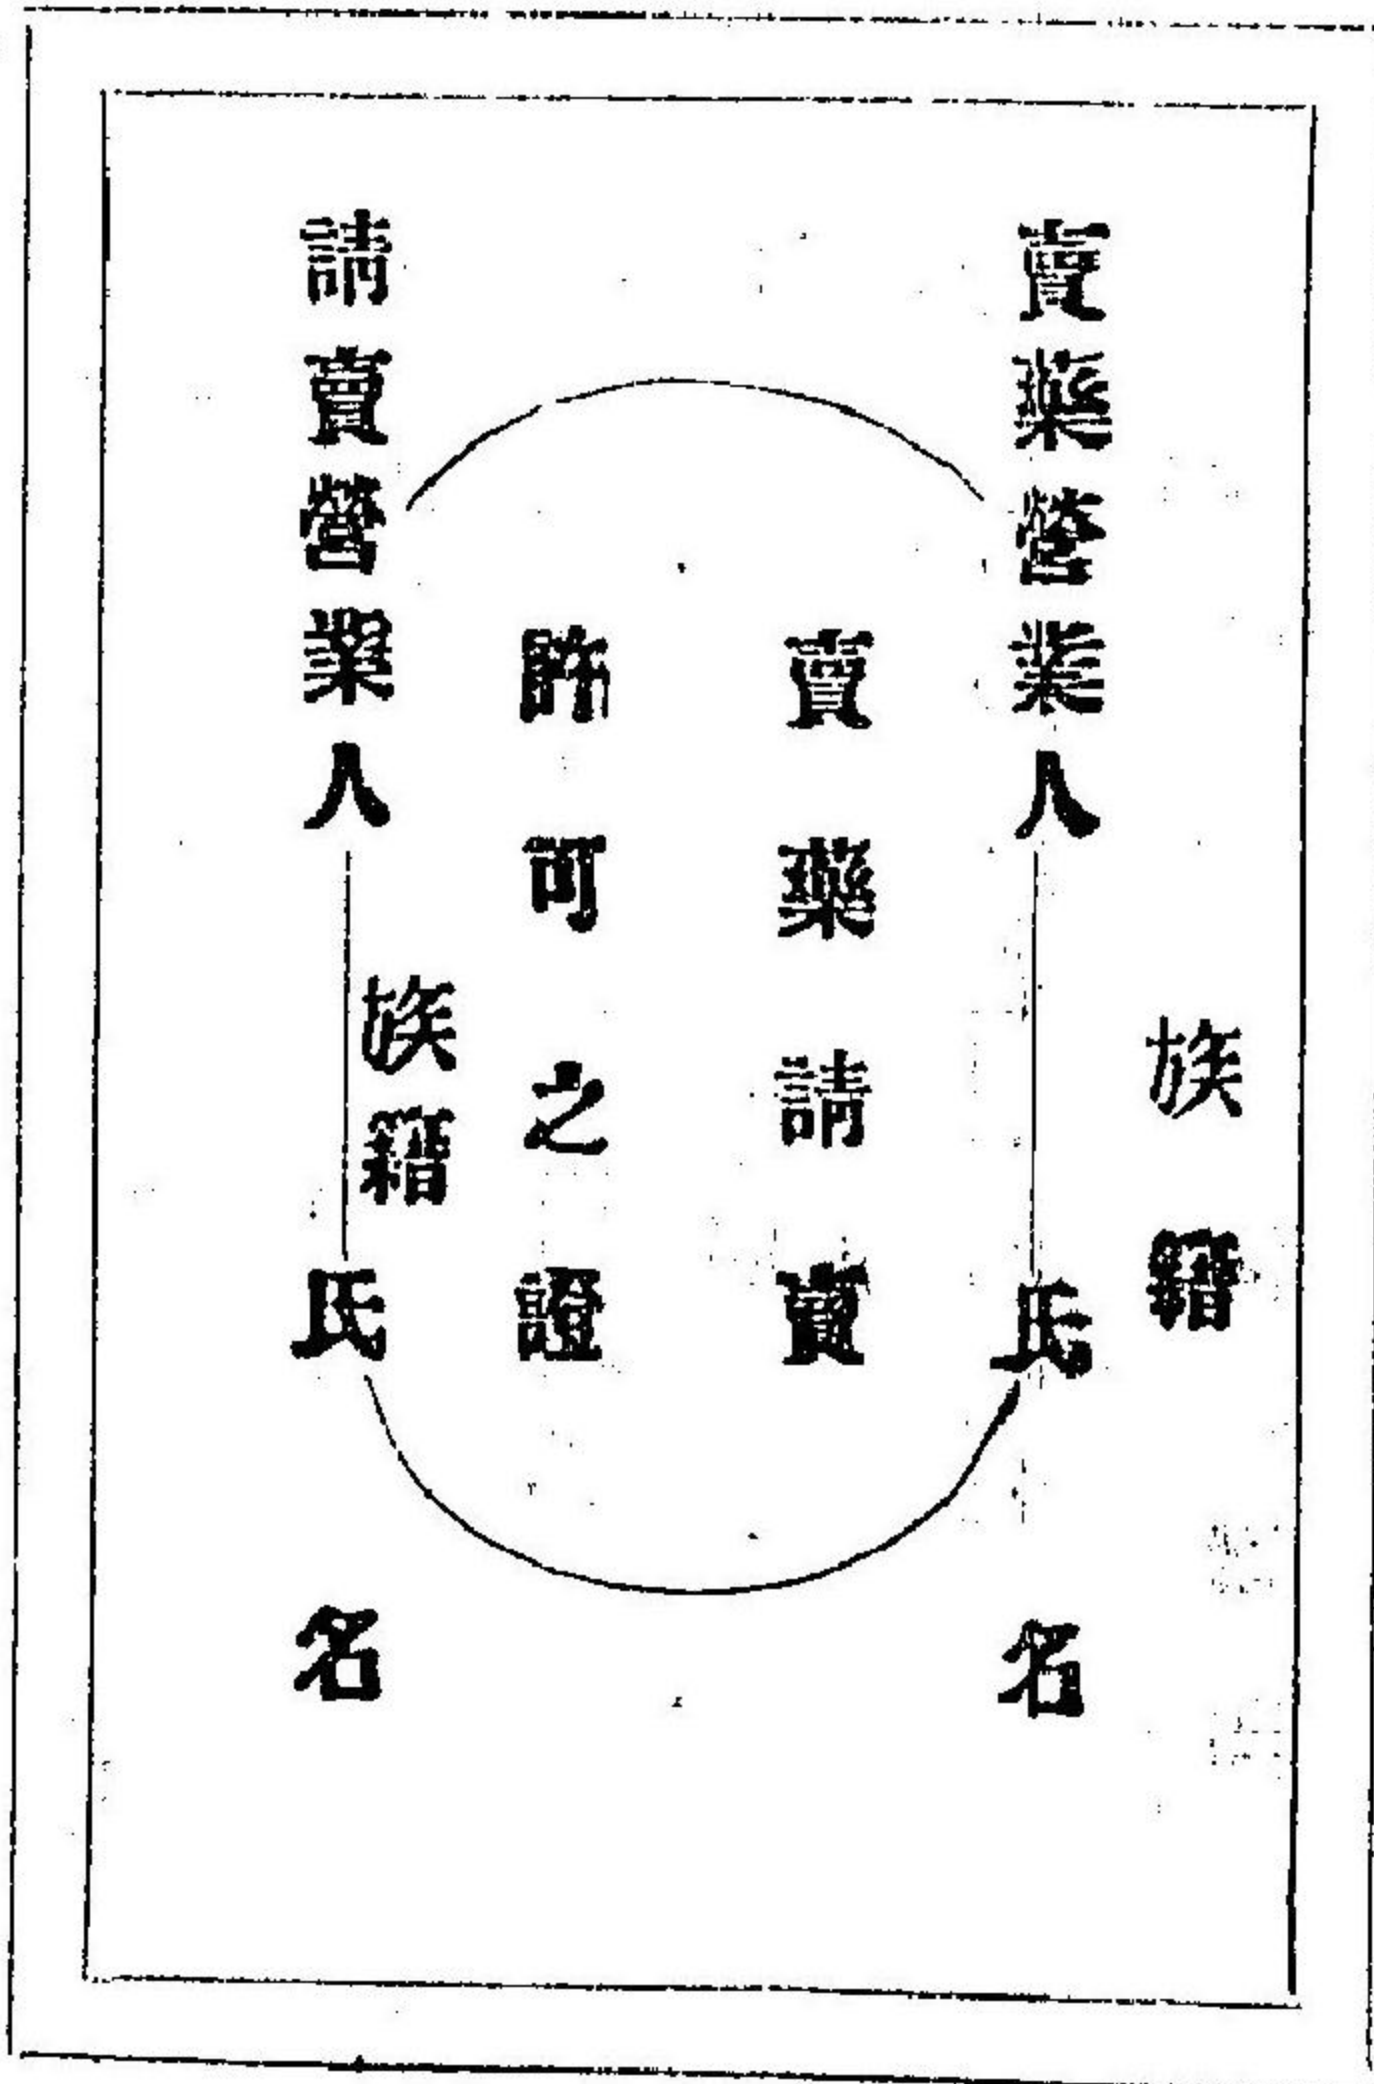 族籍
賣藥營業人 氏名
賣藥請賣
許可之證
族籍
請賣營業人 氏名